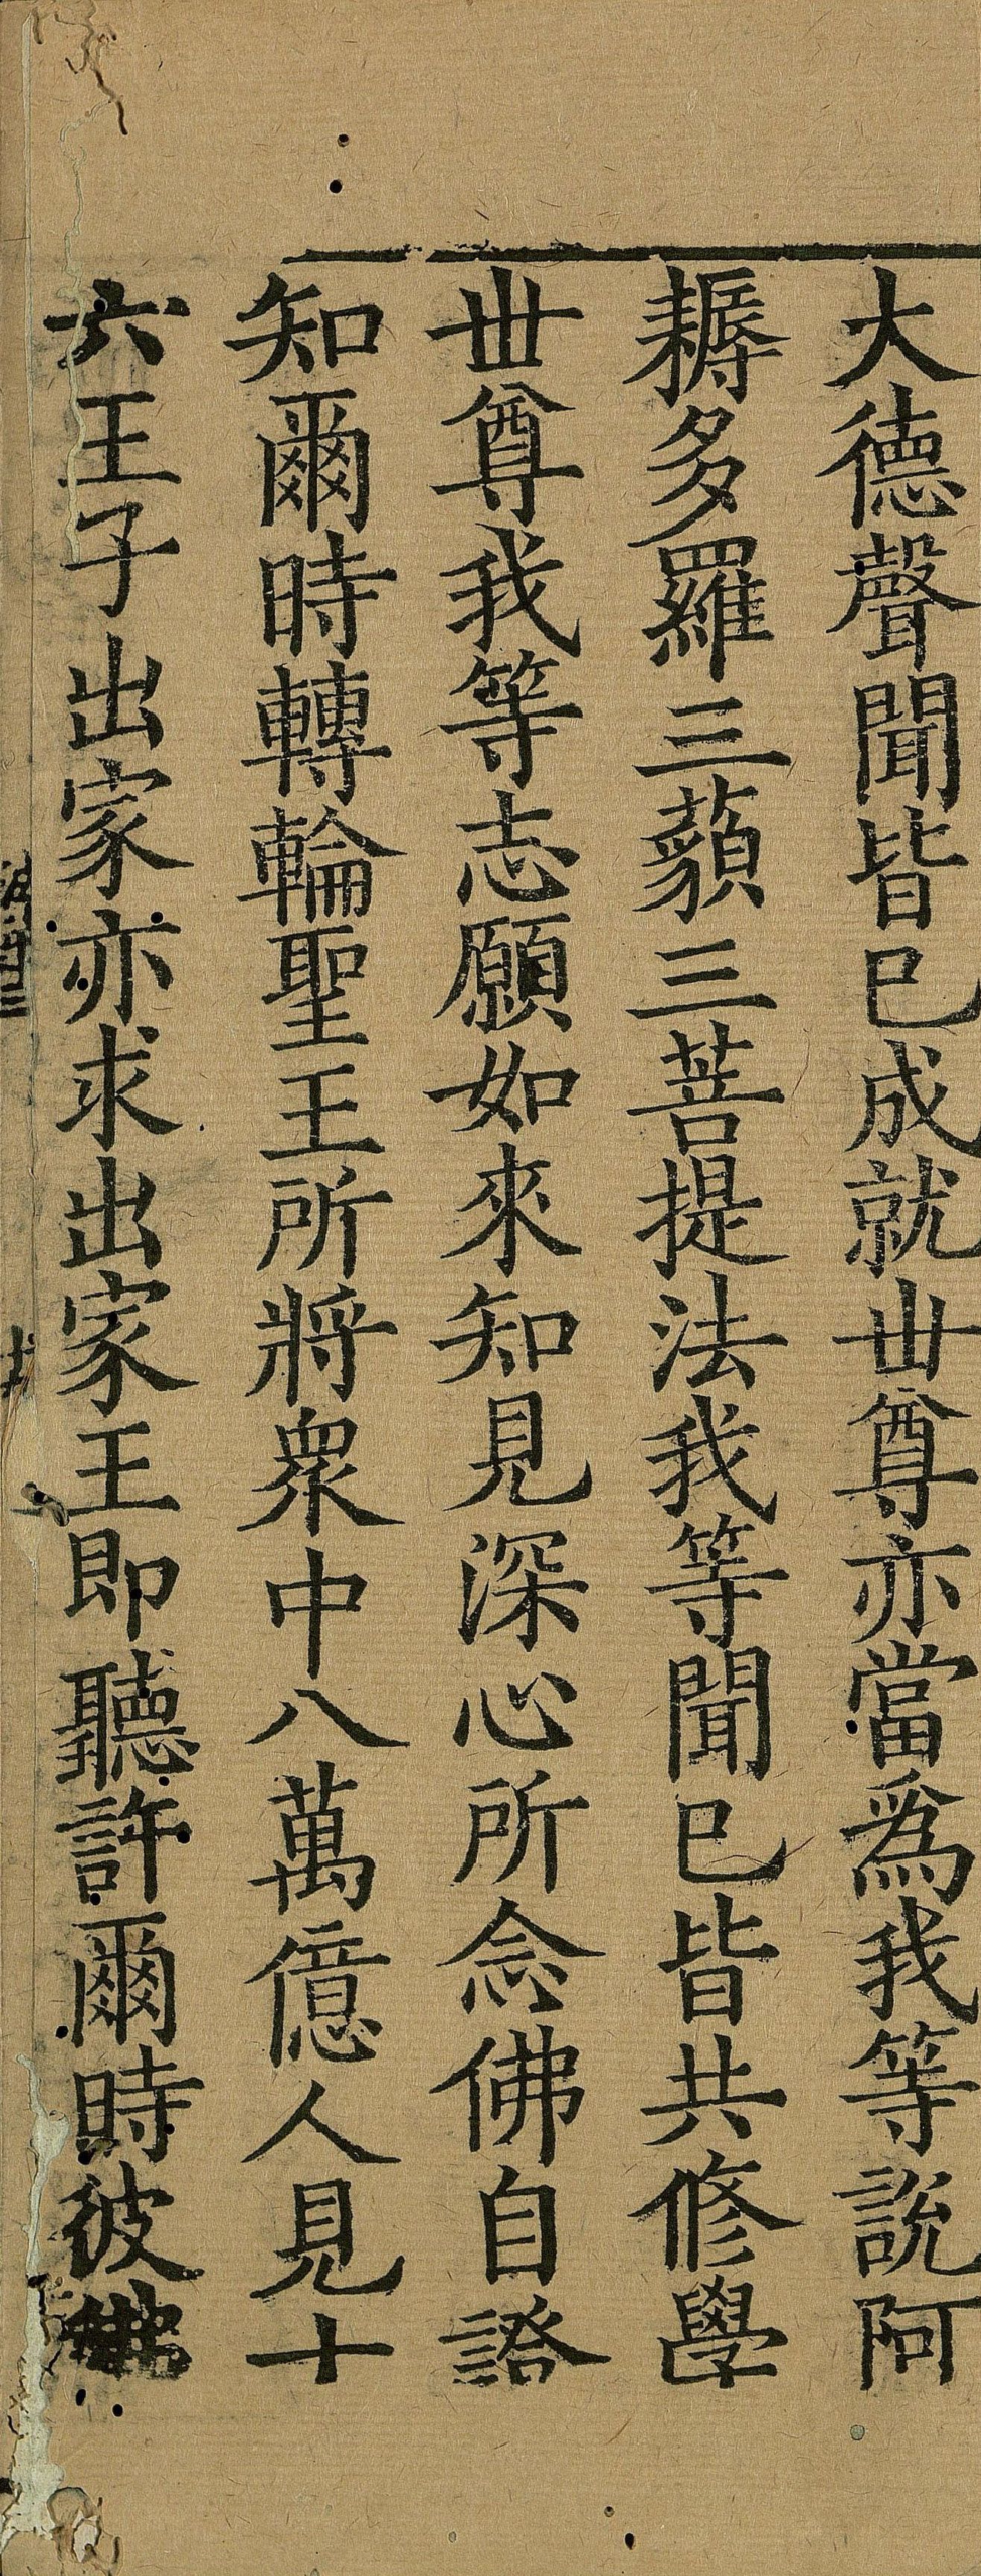 大德聲聞皆已成就丗尊亦當爲我等說阿
耨多羅三藐三菩提法我等聞已皆共修學
丗尊我等志願如來知見深心所念佛自證
知爾時轉輪聖王所將衆中八萬億人見十
六王子出家亦求出家王即聽許爾時彼